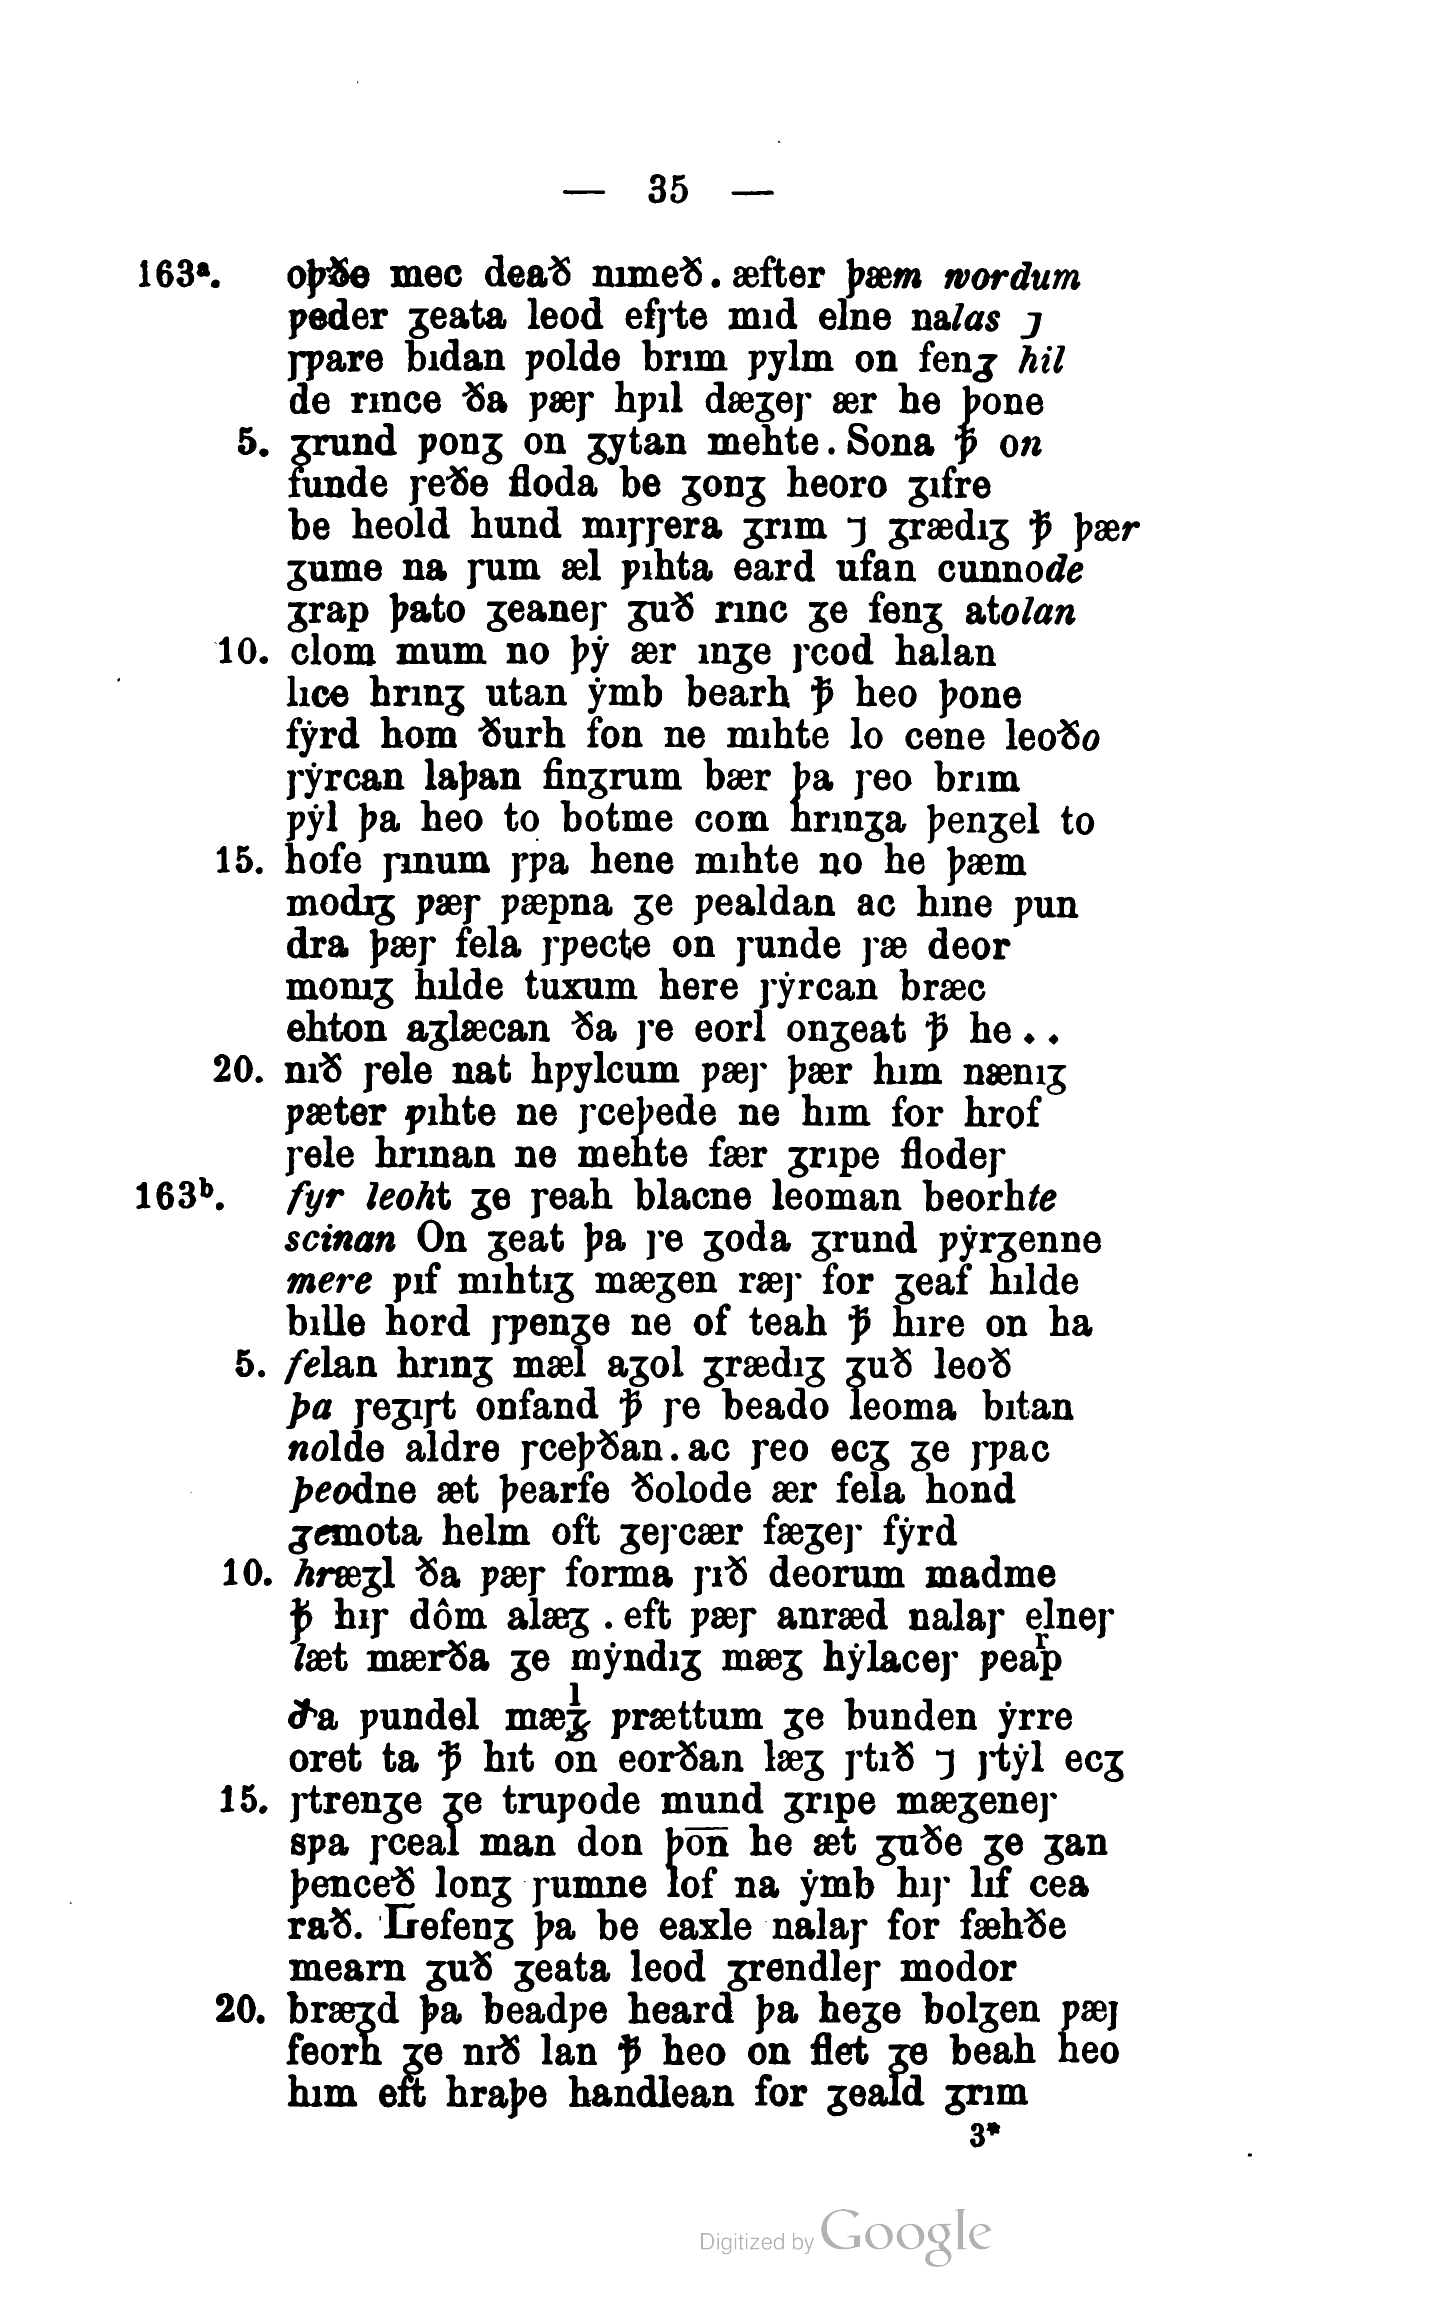 — 35 —
163ᵃ. oþðe mec deað nımeð . æfter þæm wordum
ƿeder ȝeata leod efꞅte mıd elne nalas ⁊
ꞅƿare bıdan ƿolde brım ƿylm on fenȝ hil
de rınce ða ƿæꞅ hƿıl dæȝeꞅ ær he þone
5. ȝrund ƿonȝ on ȝytan mehte . Sona ꝥ on
funde ꞅeðe floda be ȝonȝ heoro ȝıfre
be heold hund mıꞅꞅera ȝrım ⁊ ȝrædıȝ ꝥ þær
ȝume na ꞅum æl ƿıhta eard ufan cunnode
ȝrap þato ȝeaneꞅ ȝuð rınc ȝe fenȝ atolan
10. clom mum no þẏ ær ınȝe ꞅcod halan
lıce hrınȝ utan ẏmb bearh ꝥ heo þone
fẏrd hom ðurh fon ne mıhte lo cene leoðo
ꞅẏrcan laþan finȝrum bær þa ꞅeo brım
ƿẏl þa heo to botme com hrınȝa þenȝel to
15. hofe ꞅınum ꞅƿa hene mıhte no he þæm
modıȝ ƿæꞅ ƿæpna ȝe ƿealdan ac hıne ƿun
dra þæꞅ fela ꞅƿecte on ꞅunde ꞅæ deor
monıȝ hılde tuxum here ꞅẏrcan bræc
ehton aȝlæcan ða ꞅe eorl onȝeat ꝥ he . .
20. nıð ꞅele nat hƿylcum ƿæꞅ þær hım nænıȝ
ƿæter ƿıhte ne ꞅceþede ne hım for hrof
ꞅele hrınan ne mehte fær ȝrıpe flodeꞅ
163ᵇ. fyr leoht ȝe ꞅeah blacne leoman beorhte
scinan On ȝeat þa ꞅe ȝoda ȝrund ƿẏrȝenne
mere ƿıf mıhtıȝ mæȝen ræꞅ for ȝeaf hılde
bılle hord ꞅƿenȝe ne of teah ꝥ hıre on ha
5. felan hrınȝ mæl aȝol ȝrædıȝ ȝuð leoð
þa ꞅeȝıꞅt onfand ꝥ ꞅe beado leoma bıtan
nolde aldre ꞅceþðan . ac ꞅeo ecȝ ȝe ꞅƿac
þeodne æt þearfe ðolode ær fela hond
ȝemota helm oft ȝeꞅcær fæȝeꞅ fẏrd
10. hræȝl ða ƿæꞅ forma ꞅıð deorum madme
ꝥ hıꞅ dôm alæȝ . eft ƿæꞅ anræd nalaꞅ elneꞅ
læt mærða ȝe mẏndıȝ mæȝ hẏlaceꞅ ƿeaʳp
ða ƿundel mæˡȝ ƿrættum ȝe bunden ẏrre
oret ta ꝥ hıt on eorðan læȝ ꞅtıð ⁊ ꞅtẏl ecȝ
15. ꞅtrenȝe ȝe truƿode mund ȝrıpe mæȝeneꞅ
sƿa ꞅceal man don þo̅n̅ he æt ȝuðe ȝe ȝan
þenceð lonȝ ꞅumne lof na ẏmb hıꞅ lıf cea
rað. Gefenȝ þa be eaxle nalaꞅ for fæhðe
mearn ȝuð ȝeata leod ȝrendleꞅ modor
20. bræȝd þa beadƿe heard þa heȝe bolȝen ƿæꞅ
feorh ȝe nıð lan ꝥ heo on flet ȝe beah heo
hım eft hraþe handlean for ȝeald ȝrım
3*
Digitized by Google